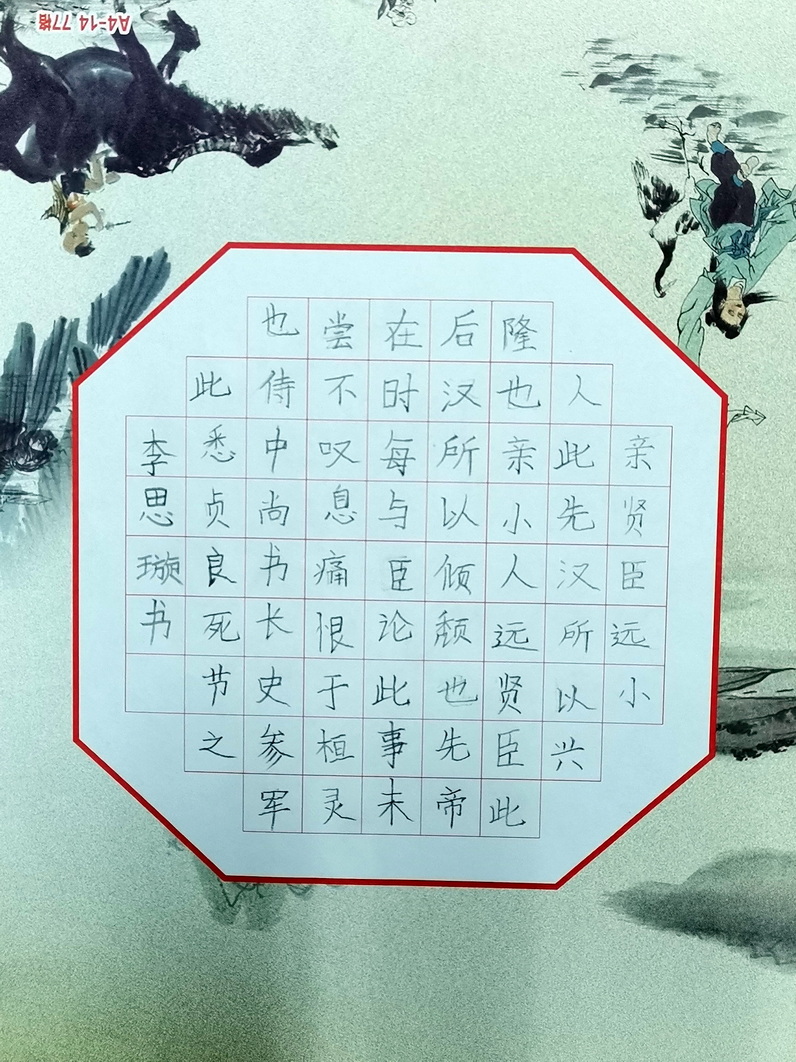 亲贤臣远小
人此先汉所以兴
隆也亲小人远贤臣此
后汉所以倾颓也先帝
在时每与臣论此事未
尝不叹息痛恨于桓灵
也侍中尚书长史参军
此悉贞良死节之
李思璇书
A4-14 77格